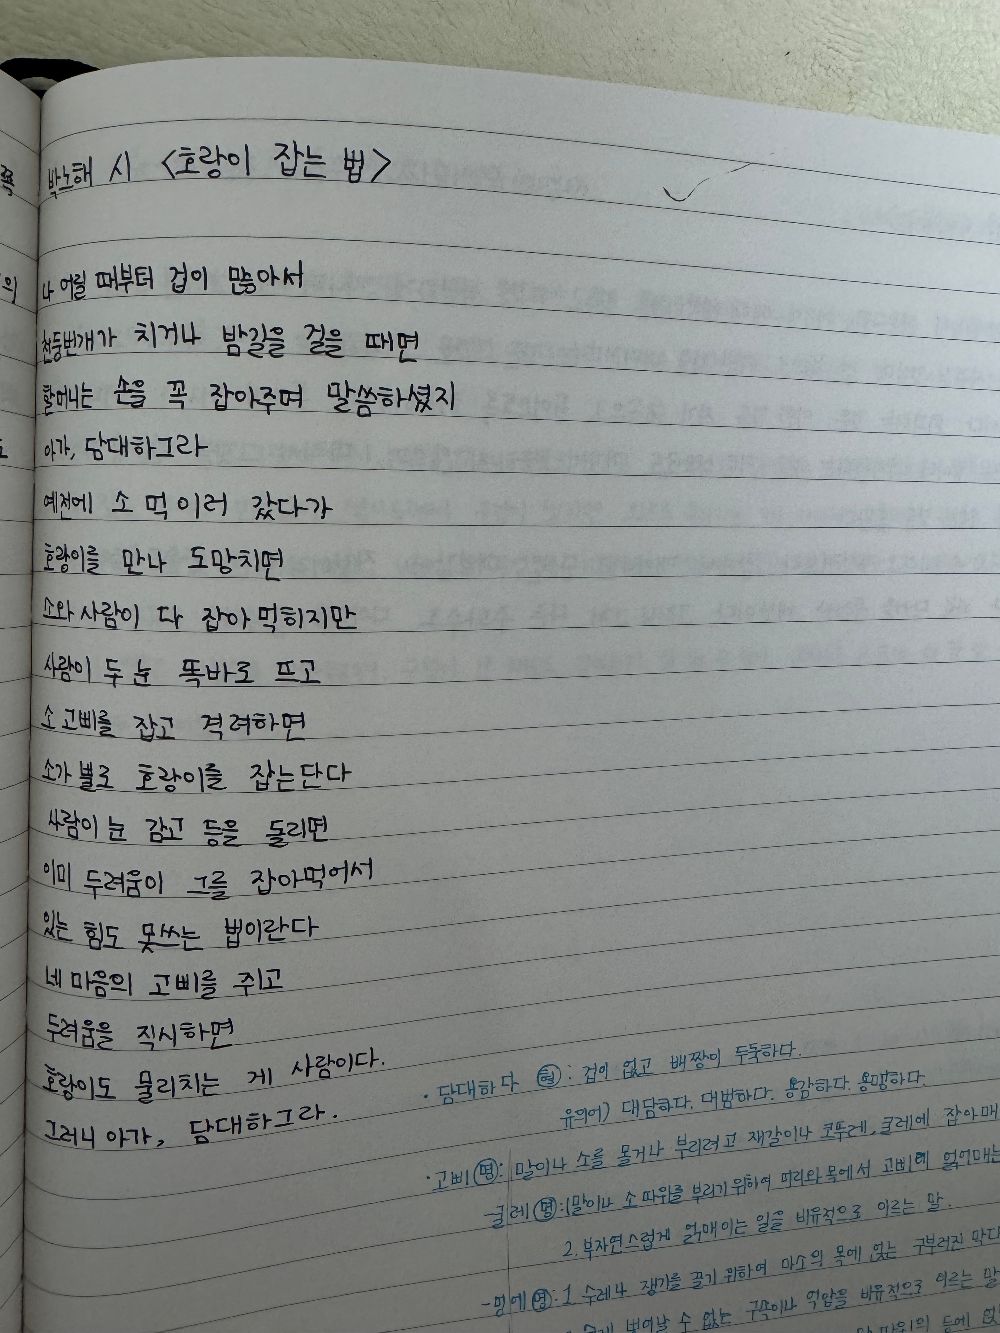 박노해 시 <호랑이 잡는 법>
나 어릴 때부터 겁이 많아서
천둥번개가 치거나 밤길을 걸을 때면
할머니는 손을 꼭 잡아주며 말씀하셨지
아가, 담대하그라
예전에 소 먹이러 갔다가
호랑이를 만나 도망치면
소와 사람이 다 잡아 먹히지만
사람이 두 눈 똑바로 뜨고
소 고삐를 잡고 격려하면
소가 뿔로 호랑이를 잡는단다
사람이 눈 감고 등을 돌리면
이미 두려움이 그를 잡아먹어서
있는 힘도 못쓰는 법이란다
네 마음의 고삐를 쥐고
두려움을 직시하면
호랑이도 물리치는 게 사람이다.
그러니 아가, 담대하그라.
· 담대하다 형 : 겁이 없고 배짱이 두둑하다.
유의어) 대담하다. 대범하다. 용감하다. 용맹하다.
· 고삐 명 : 말이나 소를 몰거나 부리려고 재갈이나 코뚜레, 굴레에 잡아매
-굴레 명 : 1 말이나 소 따위를 부리기 위하여 머리와 목에서 고삐에 얽어매는
2. 부자연스럽게 얽매이는 일을 비유적으로 이르는 말.
-멍에 명 : 1 수레나 쟁기를 끌기 위하여 마소의 목에 얹는 구부러진 막대
벗어날 수 없는 구속이나 억압을 비유적으로 이르는 말
따위의 등에